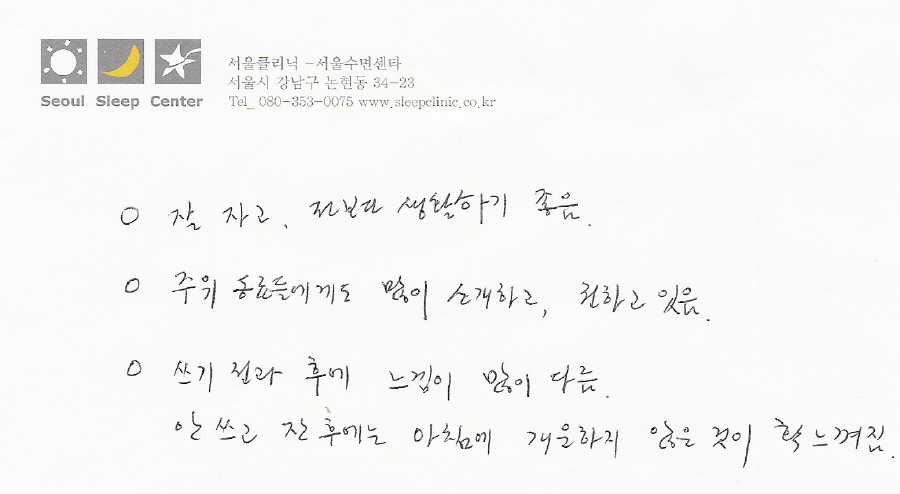 Seoul Sleep Center
서울클리닉 -서울수면센타
서울시 강남구 논현동 34-23
Tel_ 080-353-0075 www.sleepclinic.co.kr
O 잘 자고, 전보다 생활하기 좋음.
O 주위 동료들에게도 많이 소개하고, 권하고 있음.
O 쓰기 전과 후에 느낌이 많이 다름.
안 쓰고 잔 후에는 아침에 개운하지 않은 것이 확 느껴짐.